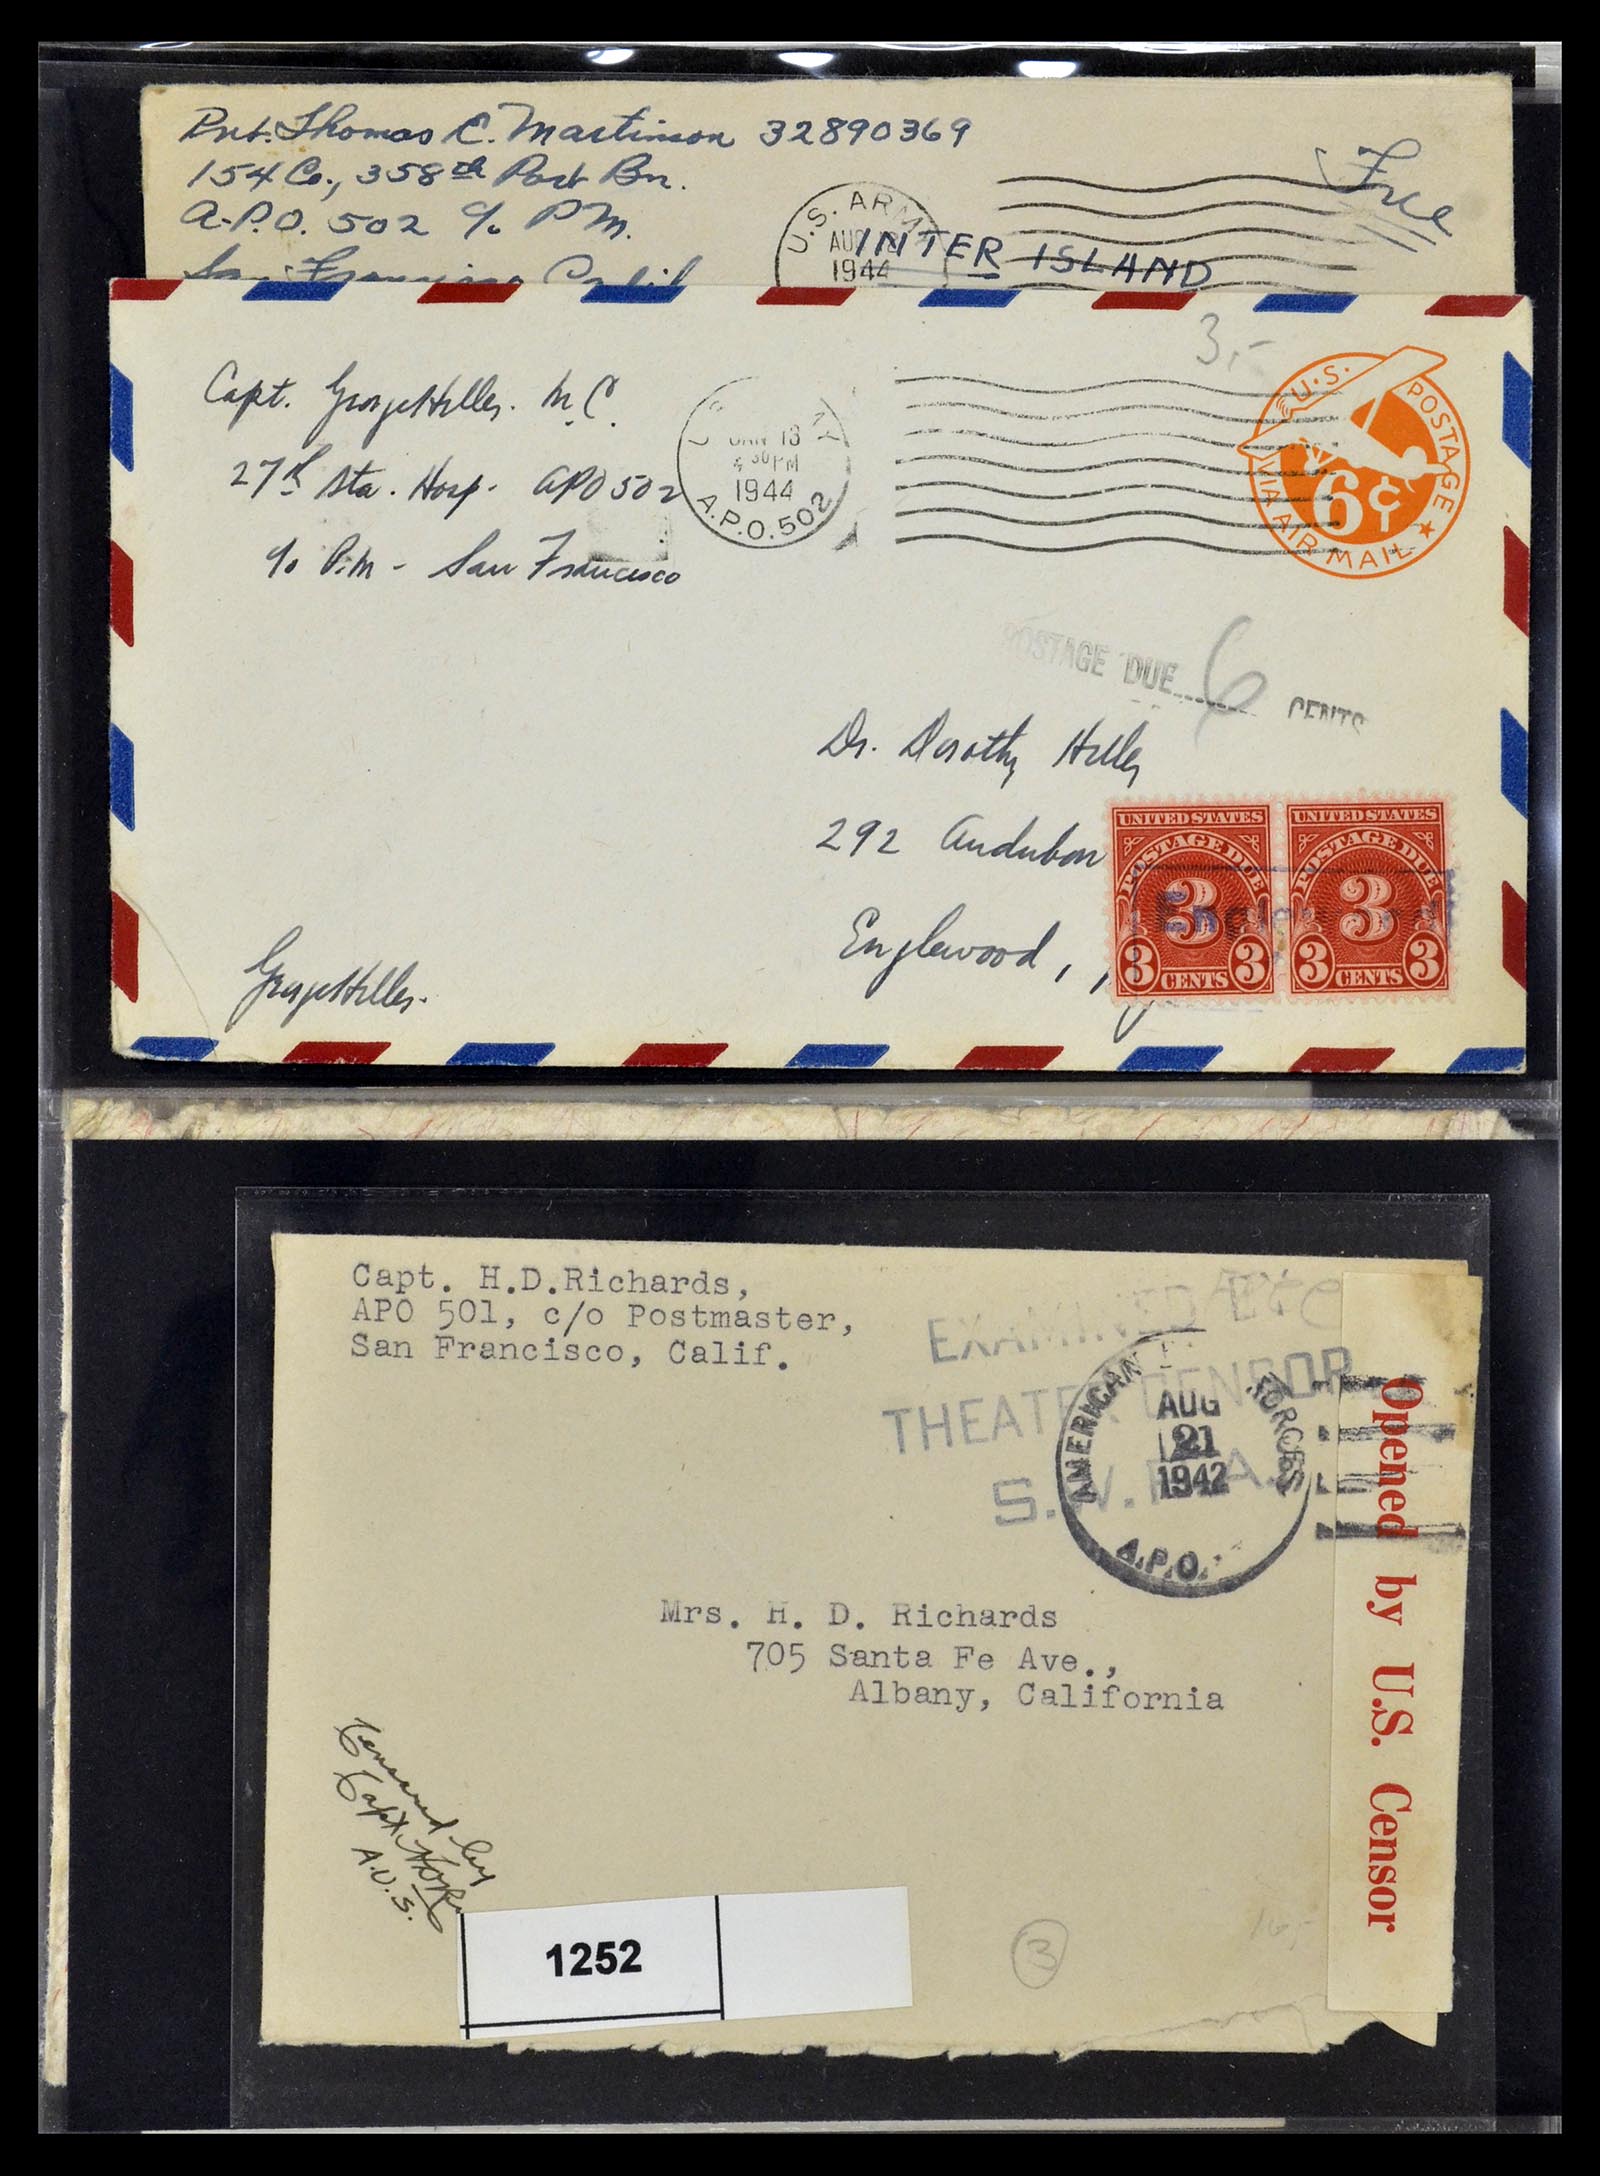 Pvt. Thomas E. Martinson 32890369
154 Co., 358th Port Bn.
A.P.O. 502 c/o P.M.
San Francisco Calif
U.S. ARMY
AUG
1944
Free
INTER ISLAND
3,-
Capt. George Heller. M.C.
27th Sta. Hosp. APO 502
c/o P.M - San Francisco
JAN 13
4 30 PM
1944
A.P.O. 502
U.S. POSTAGE
6¢
VIA AIR MAIL
POSTAGE DUE 6 CENTS
Dr. Dorothy Heller
292 Audubon
Englewood,
George Heller.
UNITED STATES
POSTAGE DUE
3
3 CENTS 3
UNITED STATES
POSTAGE DUE
3
3 CENTS 3
Capt. H.D.Richards,
APO 501, c/o Postmaster,
San Francisco, Calif.
EXAMINED BY
THEATER CENSOR
S.W.P.A.
AMERICAN FORCES
AUG
21
1942
A.P.O.
Mrs. H. D. Richards
705 Santa Fe Ave.,
Albany, California
Opened by U.S. Censor
Censored by
Capt.
A.U.S.
1252
3